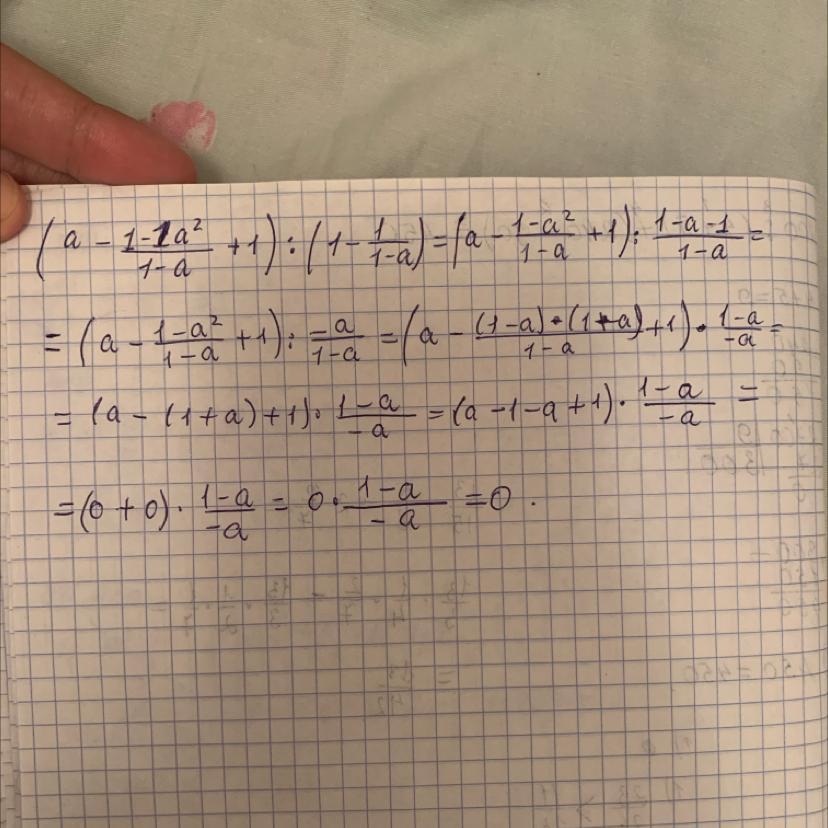 (a - \frac{1-1a²}{1-a} + 1) : (1 - \frac{1}{1-a}) = (a - \frac{1-a²}{1-a} + 1) : \frac{1-a-1}{1-a} =
= (a - \frac{1-a²}{1-a} + 1) : \frac{-a}{1-a} = (a - \frac{(1-a)·(1+a)}{1-a} + 1) · \frac{1-a}{-a} =
= (a - (1+a) + 1) · \frac{1-a}{-a} = (a - 1 - a + 1) · \frac{1-a}{-a} =
= (0 + 0) · \frac{1-a}{-a} = 0 · \frac{1-a}{-a} = 0 .